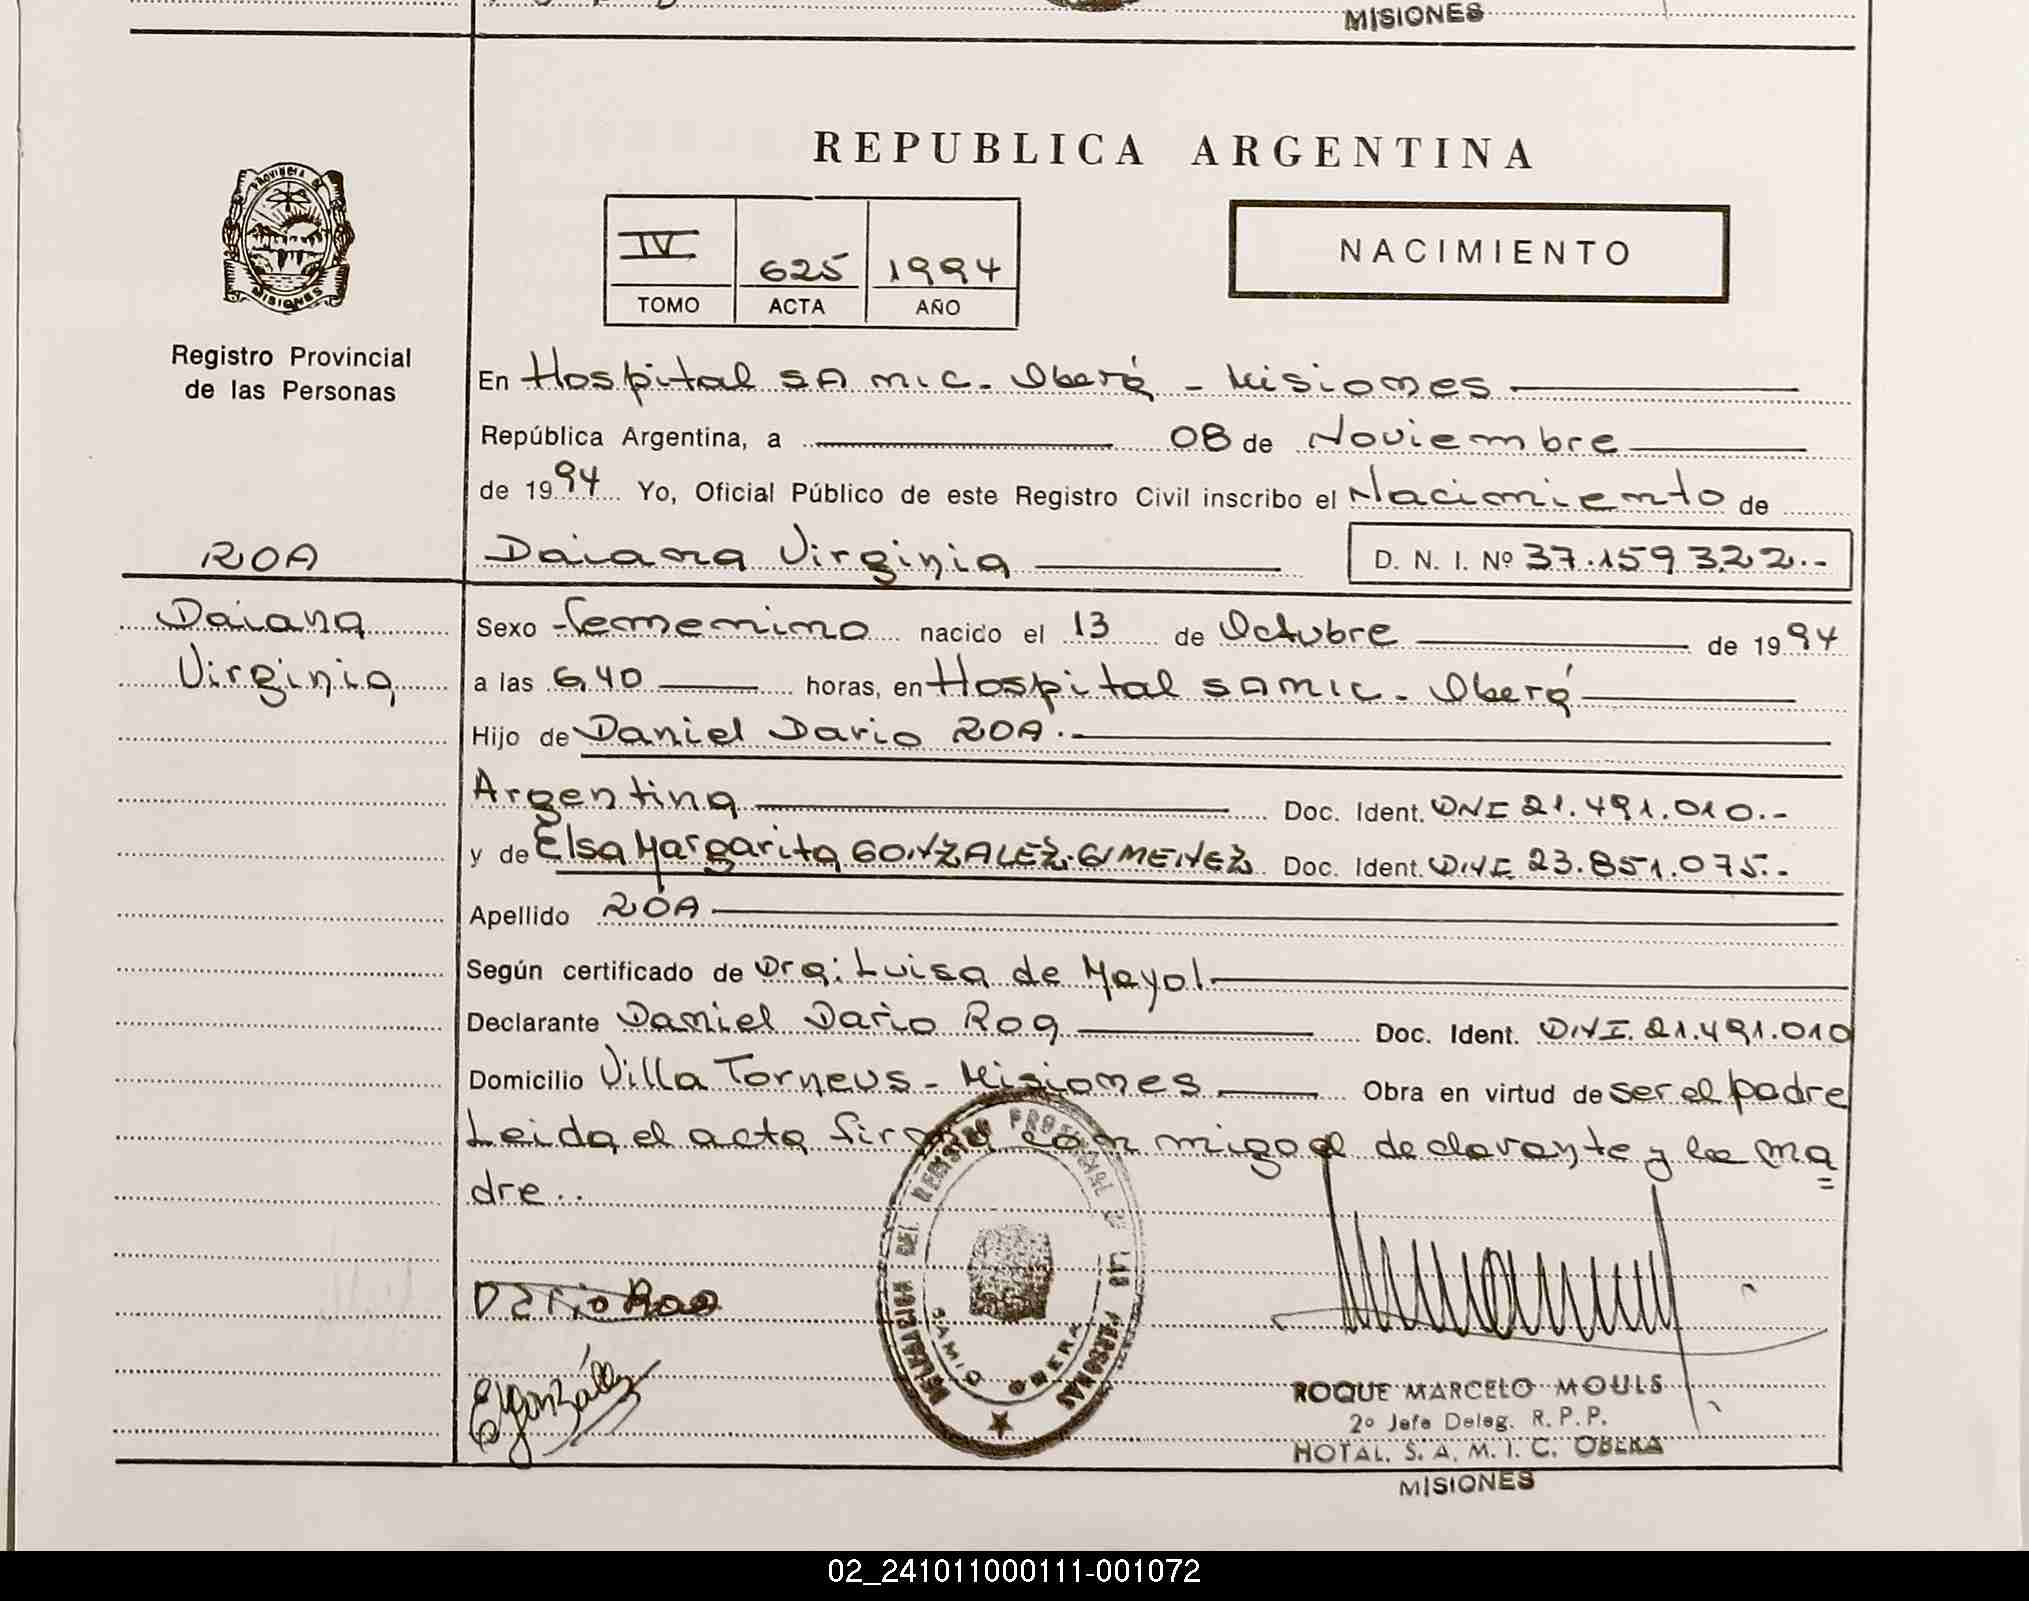 MISIONES
REPUBLICA ARGENTINA
PROVINCIA DE
MISIONES
IV 625 1994
TOMO ACTA AÑO
NACIMIENTO
Registro Provincial
de las Personas
En Hospital SAMIC - Oberá - Misiones
República Argentina, a 08 de Noviembre
de 1994 Yo, Oficial Público de este Registro Civil inscribo el Nacimiento de
ROA
Daiana Virginia D. N. I. Nº 37.159322.-
Daiana
Virginia
Sexo femenino nacido el 13 de Octubre de 1994
a las 6,40 horas, en Hospital SAMIC - Oberá
Hijo de Daniel Dario ROA.-
Argentina Doc. Ident. DNI 21.491.010.-
y de Elsa Margarita GONZALEZ GIMENEZ Doc. Ident. DNI 23.851.075.-
Apellido ROA
Según certificado de Dra: Luisa de Mayol
Declarante Daniel Dario Roa Doc. Ident. DNI. 21.491.010
Domicilio Villa Torneus - Misiones Obra en virtud de ser el padre
Leida el acta firma con migo el declarante y la ma
dre..
DELEGACION DEL REGISTRO PROVINCIAL DE LAS PERSONAS
SAMIC OBERA
Dario Roa
EGonzález
ROQUE MARCELO MOULS
2º Jefe Deleg. R. P. P.
HOTAL. S. A. M. I. C. OBERA
MISIONES
02_241011000111-001072